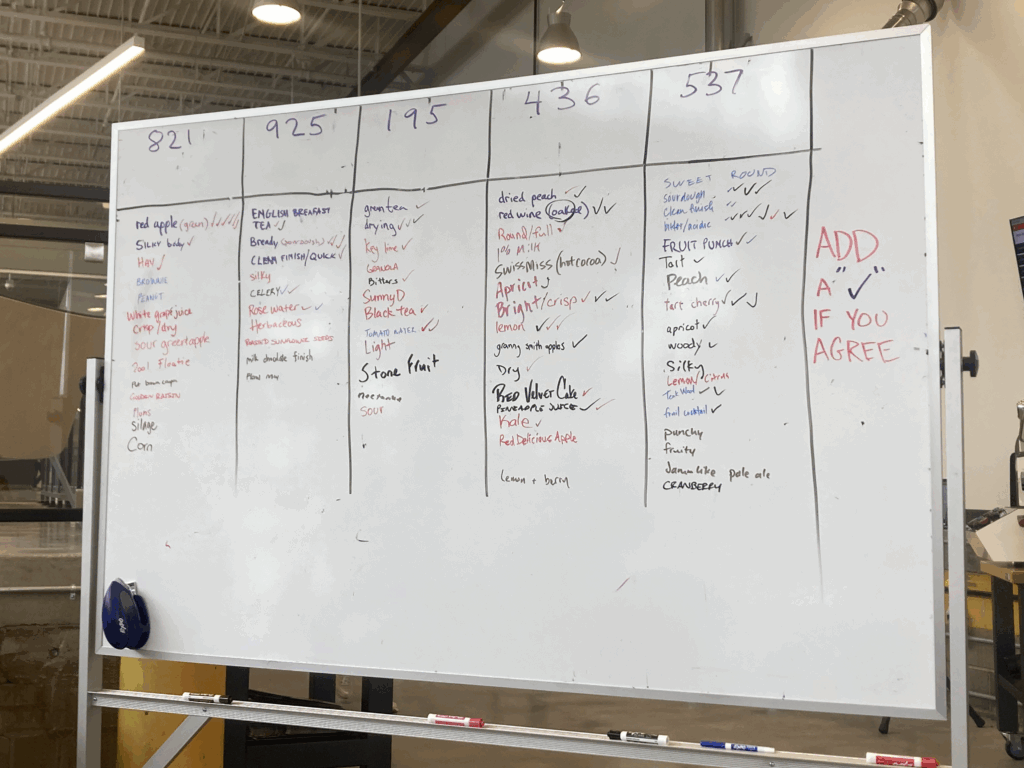 821
925
195
436
537
red apple (green) ✓✓✓✓✓
SILKY body ✓
HAY ✓
BROWNIE
PEANUT
White grape juice
Crisp/dry
sour green apple
Pool Floatie
Silage
Corn
ENGLISH BREAKFAST
TEA ✓✓
Bready ✓✓
CLEAN FINISH/QUICK ✓
silky
CELERY ✓✓
Rose water ✓✓
Herbaceous
ROASTED SUNFLOWER SEEDS
milk chocolate finish
green tea ✓
drying ✓✓✓
Key lime ✓
Bitters ✓
SunnyD
Black tea ✓
TOMATO WATER ✓✓
Light
Stone Fruit
nectarine
SOUR
dried peach ✓✓
red wine (oakee) ✓✓
Round/full ✓
1% Milk
SWISS MISS (hot cocoa) ✓
Apricot ✓
Bright/crisp ✓✓✓
lemon ✓✓✓
granny smith apples ✓
Dry ✓
RED VELVET CAKE ✓
PINEAPPLE JUICE ✓✓
Kale ✓
Red Delicious Apple
Lemon + berry
SWEET ROUND
sourdough ✓✓✓
clean finish ✓✓✓✓✓✓
FRUIT PUNCH ✓✓
Tart ✓
Peach ✓✓
tart cherry ✓✓✓
apricot ✓
woody ✓
Silky
Lemon/Citrus
fruit cocktail ✓
punchy
fruity
pale ale
CRANBERRY
ADD
A "✓"
IF YOU
AGREE
expo